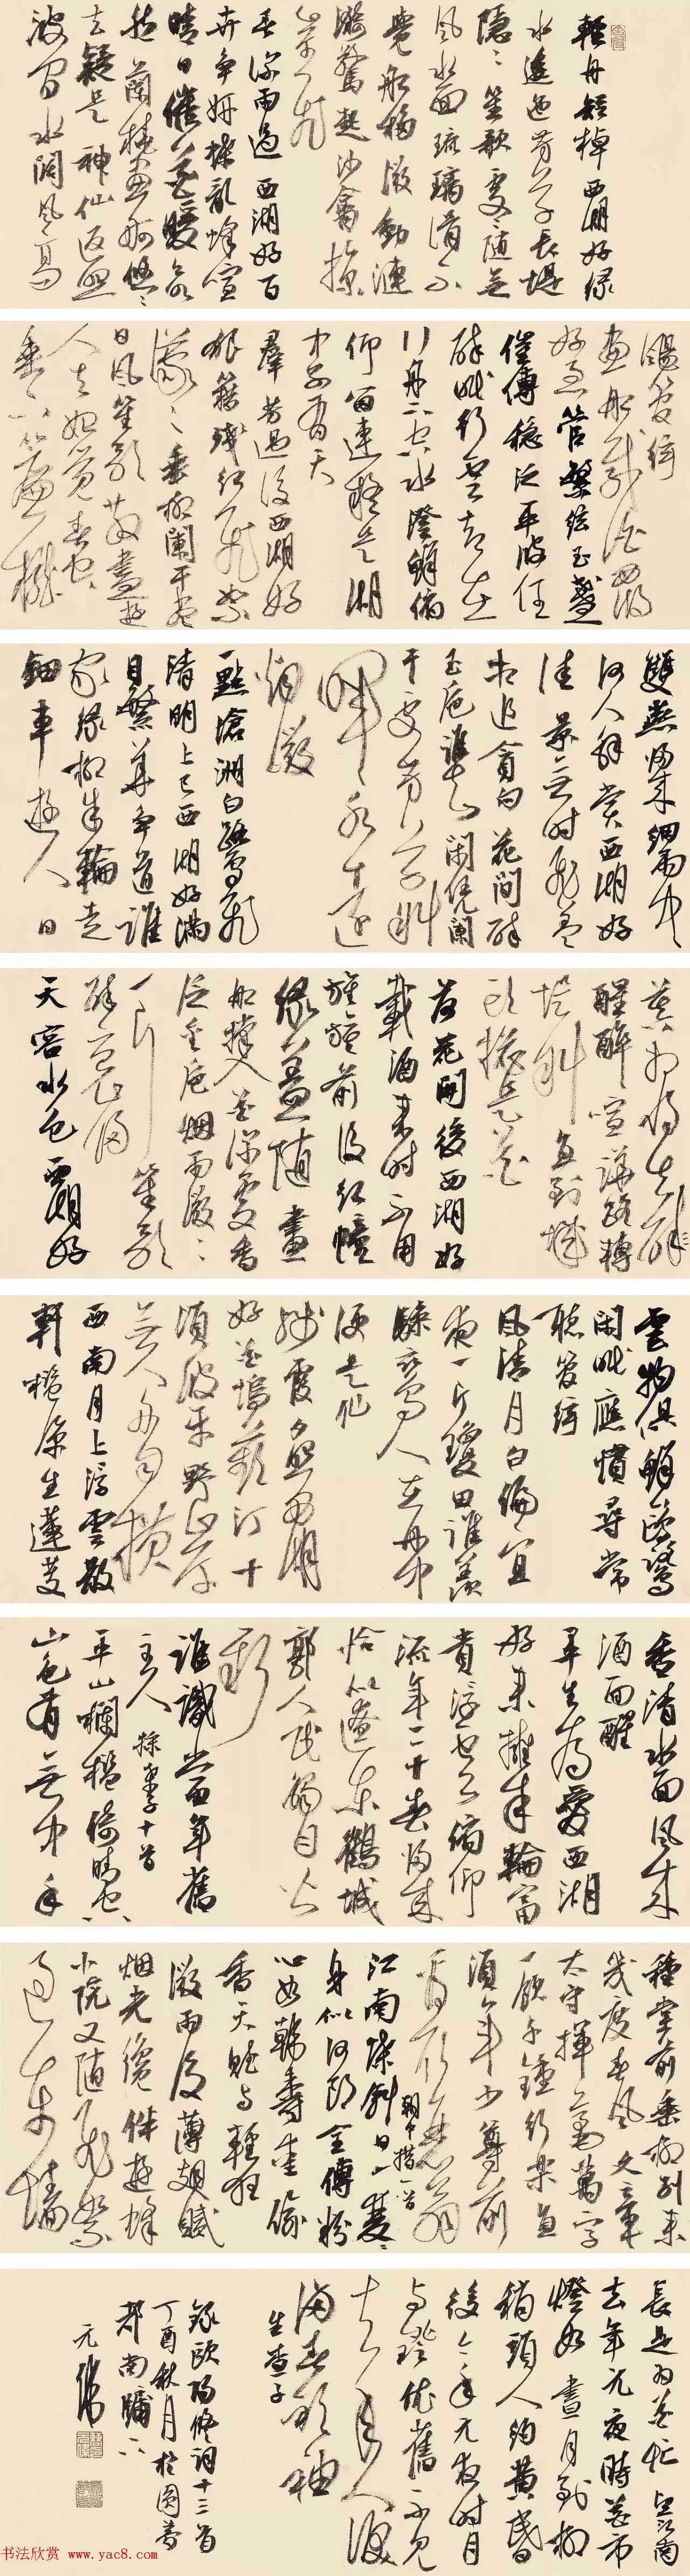 轻舟短棹西湖好绿
水逶迤芳草长堤
隐隐笙歌处处随无
风水面琉璃滑不
觉船移微动涟
漪惊起沙禽掠
岸飞
春深雨过西湖好百
卉争妍蝶乱蜂喧
晴日催花暖欲
然兰桡画舸悠悠
去疑是神仙返照
波间水阔风高
飏管弦
画船载酒西湖
好急管繁弦玉盏
催传稳泛平波任
醉眠行云却在
行舟下空水澄鲜俯
仰留连疑是湖
中别有天
群芳过后西湖好
狼籍残红飞絮
濛濛垂柳阑干尽
日风笙歌散尽游
人去始觉春空
垂下帘栊
双燕归来细雨中
何人解赏西湖好
佳景无时飞盖
相追贪向花间醉
玉卮谁知闲凭阑
干处芳草斜
晖水远
烟微
一点沧洲白鹭飞
清明上巳西湖好满
目繁华争道谁
家绿柳朱轮走
钿车游人日
暮相将去醒
醒醉喧哗路转
堤斜直到城
头总是花
荷花开后西湖好
载酒来时不用
旌旗前后红幢
绿盖随画
船撑入花深处香
泛金卮烟雨微微
一片笙歌
醉里归
天容水色西湖好
云物俱鲜鸥鹭
闲眠应惯寻常
听管弦
风清月白偏宜
夜一片琼田谁羡
骖鸾人在舟中
便是仙
残霞夕照西湖
好花坞蘋汀十
顷波平野岸
无人舟自横
西南月上浮云散
轩槛凉生莲芰
香清水面风来
酒面醒
平生为爱西湖
好来拥朱轮富
贵浮云俯仰
流年二十春归来
恰似辽东鹤城
郭人民触目皆
新
谁识当年旧
主人 采桑子十首
平山栏槛倚晴空
山色有无中手
种堂前垂柳别来
几度春风文章
太守挥毫万字
一饮千钟行乐直
须年少尊前
看取衰翁
朝中措一首
江南蝶斜日一双双
身似何郎全傅粉
心如韩寿爱偷
香天赋与轻狂
微雨后薄翅腻
烟光才伴游蜂
小院又随飞絮
过东墙
长是为花忙 望江南
去年元夜时花市
灯如昼月到柳
梢头人约黄昏
后今年元夜时月
与灯依旧不见
去年人泪
满春衫袖
生查子
录欧阳修词十三首
丁酉秋月於图
都南牖下
元伟
书法欣赏 www.yac8.com